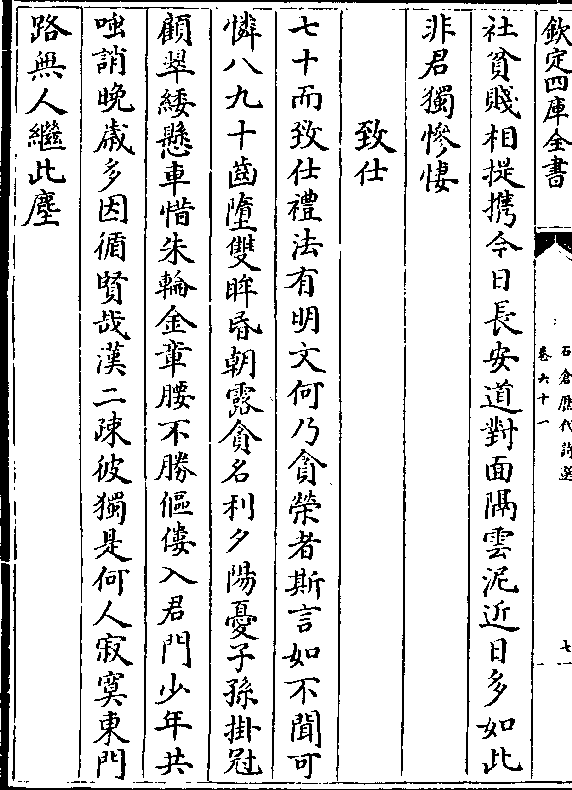 欽定四庫全書
石倉歷代詩選
卷六十一
七
社貧賤相提攜今日長安道對面隔雲泥近日多如此
非君獨慘悽
致仕
七十而致仕禮法有明文何乃貪榮者斯言如不聞可
憐八九十齒墮雙眸昏朝露貪名利夕陽憂子孫掛冠
顧翠緌懸車惜朱輪金章腰不勝傴僂入君門少年共
嗤誚晩歲多因循賢哉漢二疎彼獨是何人寂寞東門
路無人繼此塵